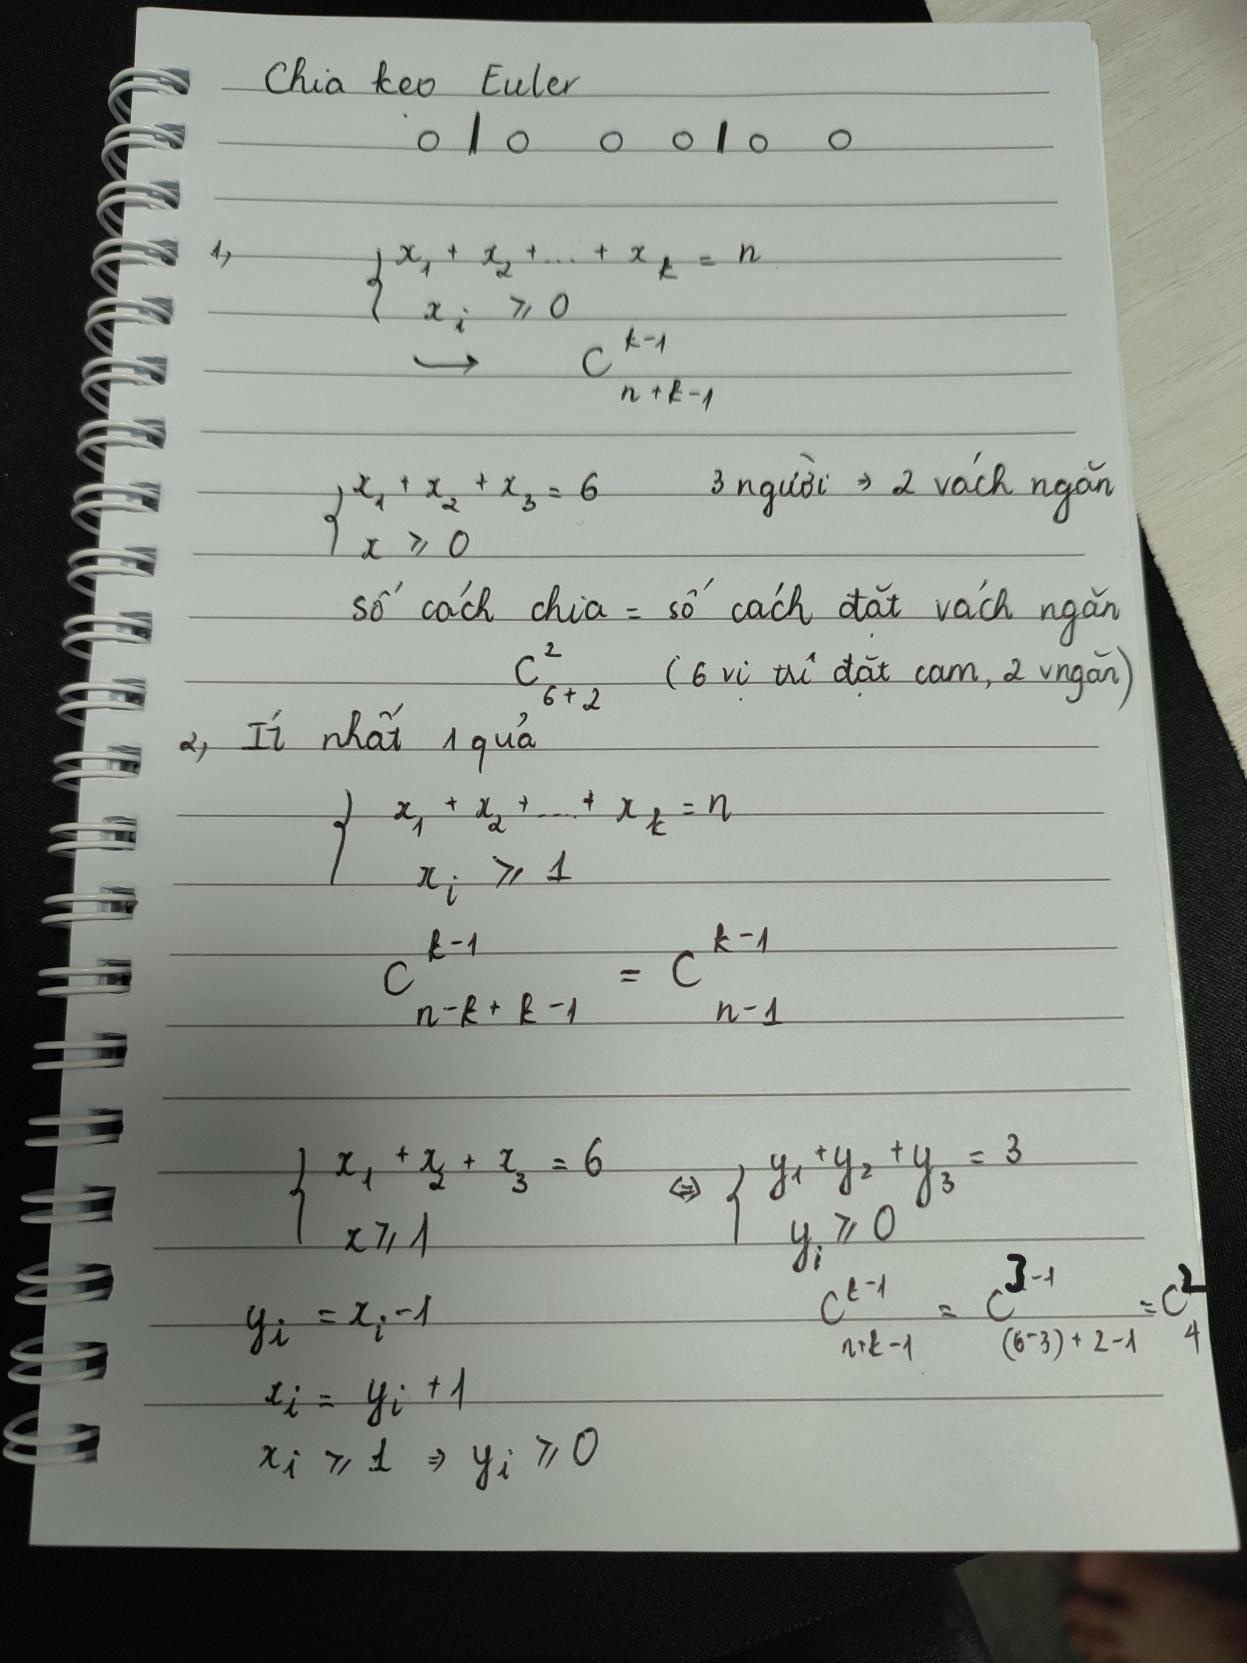 Chia kẹo Euler
o | o o o | o o
1, { x₁ + x₂ + ... + x_k = n
x_i ≥ 0
→ C^{k-1}_{n+k-1}
{ x₁ + x₂ + x₃ = 6 3 người ⇒ 2 vách ngăn
x ≥ 0
số cách chia = số cách đặt vách ngăn
C^2_{6+2} (6 vị trí đặt cam, 2 vngăn)
2, Ít nhất 1 quả
{ x₁ + x₂ + ... + x_k = n
x_i ≥ 1
C^{k-1}_{n-k+k-1} = C^{k-1}_{n-1}
{ x₁ + x₂ + x₃ = 6 ⇔ { y₁ + y₂ + y₃ = 3
x ≥ 1 y_i ≥ 0
y_i = x_i - 1 C^{k-1}_{n+k-1} = C^{3-1}_{(6-3)+2-1} = C^2_4
x_i = y_i + 1
x_i ≥ 1 ⇒ y_i ≥ 0